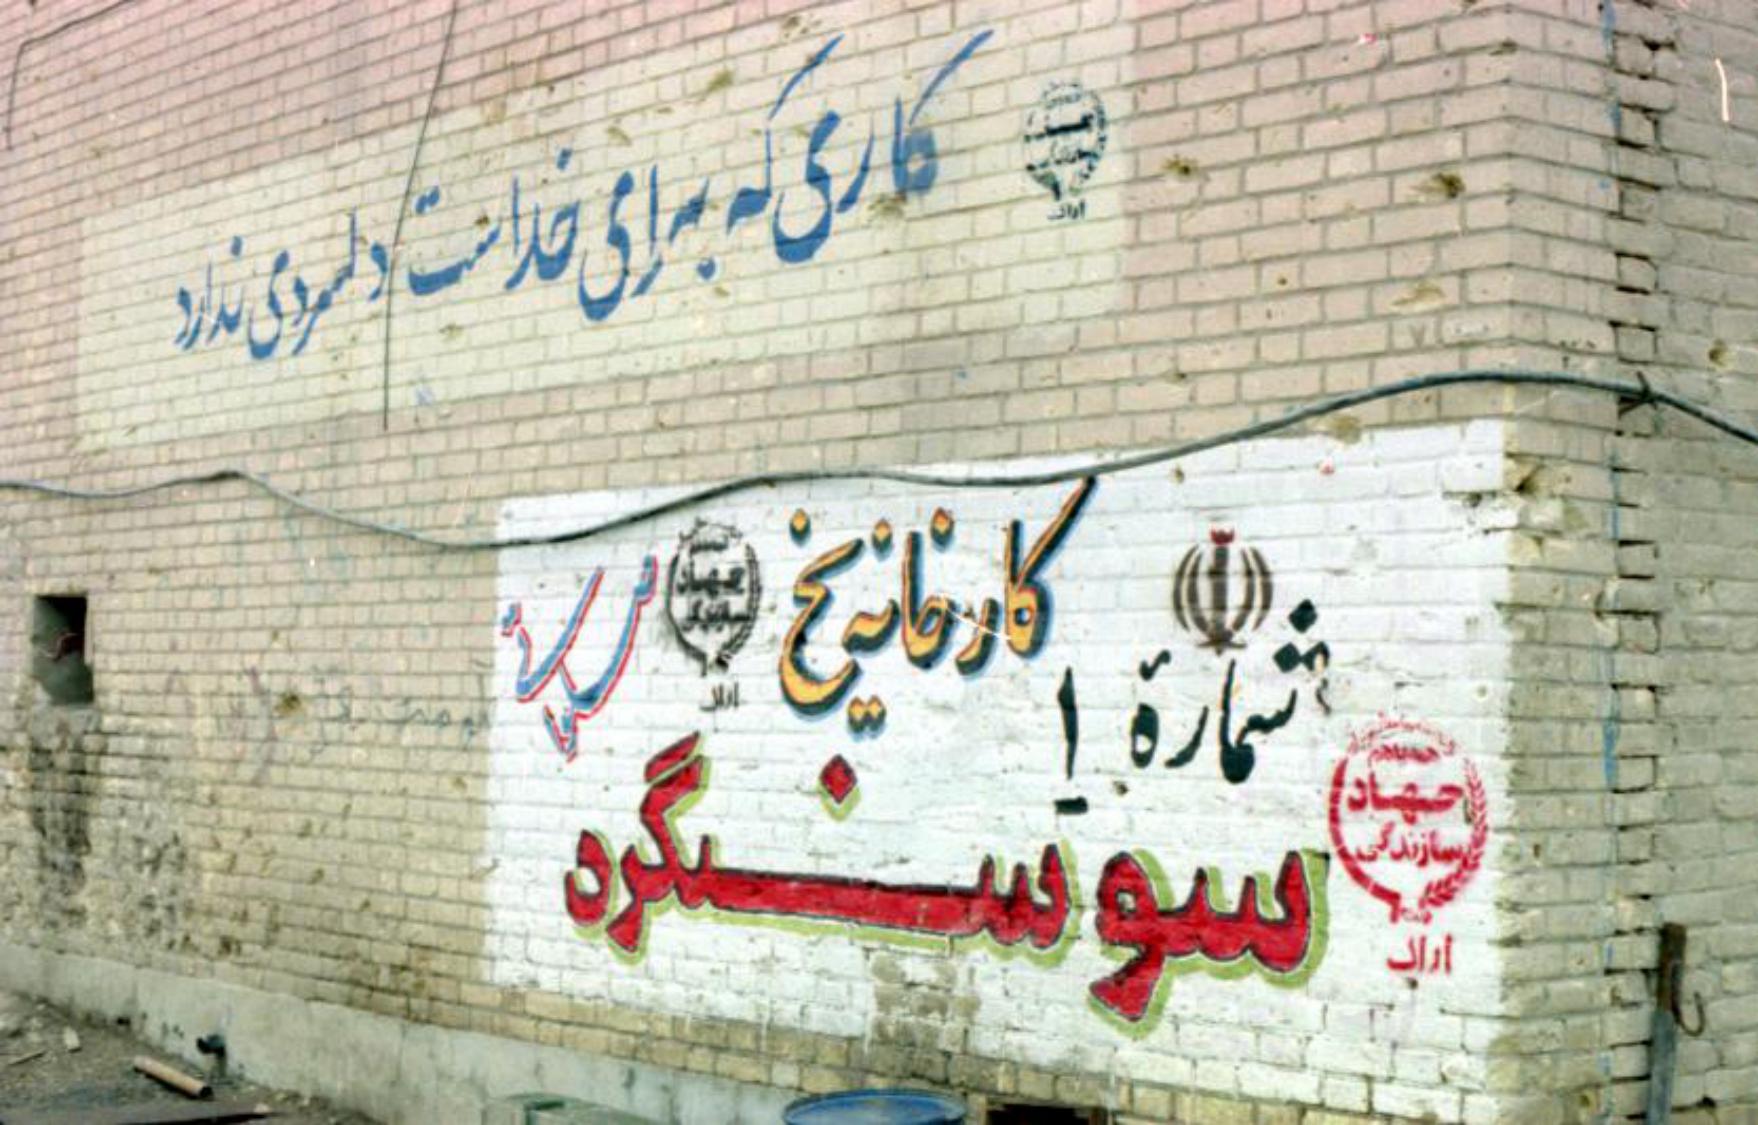 کاری که برای خداست دلسردی ندارد
اراک
کارخانه یخ
جهاد
سازندگی
اراک
شمارهٔ ۱
سوسنگرد
جهاد
سازندگی
اراک